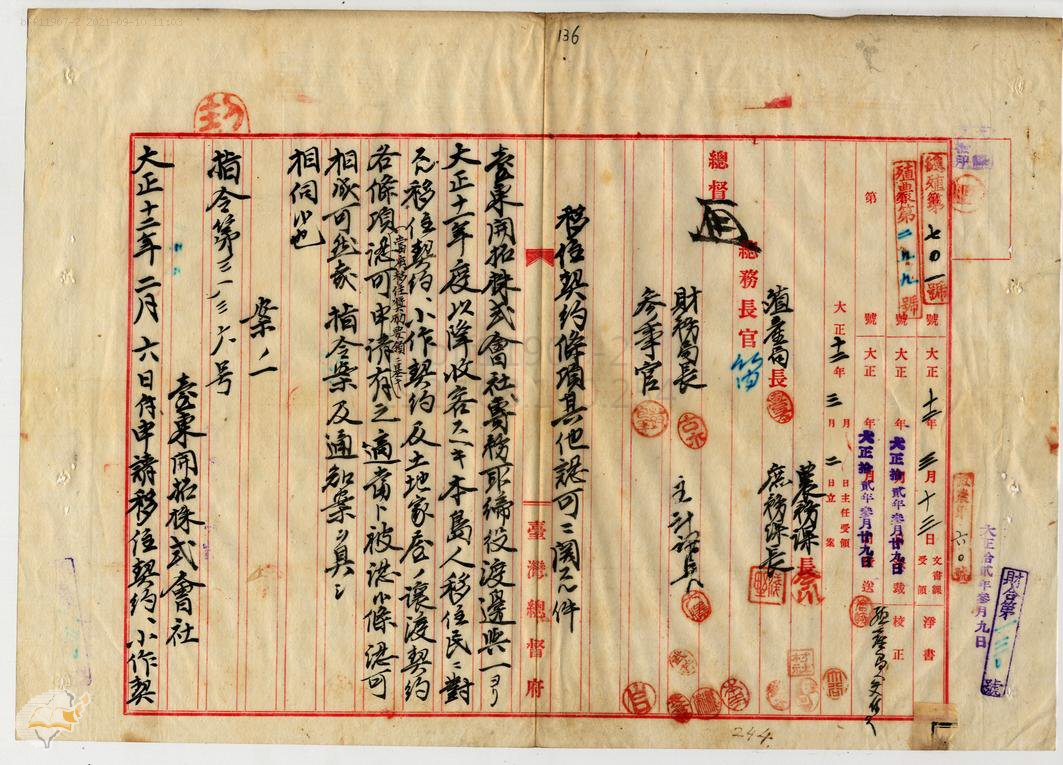 136
總殖第七〇一號
殖農第二九九號
第 號 號 號
大正十二年三月十三日 文書課受領 淨書
大正 年 大正拾貳年參月廿九日 裁 校正
大正 年 大正拾貳年參月廿九日 送
大正十二年三月二日立案
月 日主任受領
財合第 號
大正拾貳年參月九日
六〇號
總督
總務長官
殖產局長
農務課長
庶務課長
財務局長
主計課長
參事官
移住契約條項其他認可ニ關スル件
臺東開拓株式會社專務取締役渡邊與一ヨリ
大正十一年度以降收容スヘキ本島人移住民ニ對
スル移住契約、小作契約及土地家屋ノ讓渡契約
(當府移住獎勵要領ニ基キ)
各條項認可申請有之適當ト被認候條認可
相成可然哉指令案及通知案ヲ具シ
相伺候也
案ノ一
指令第三一三六号
臺東開拓株式會社
大正十二年二月六日付申請移住契約、小作契
臺灣總督府
244
bnf11967-2 2021-09-10 11:03